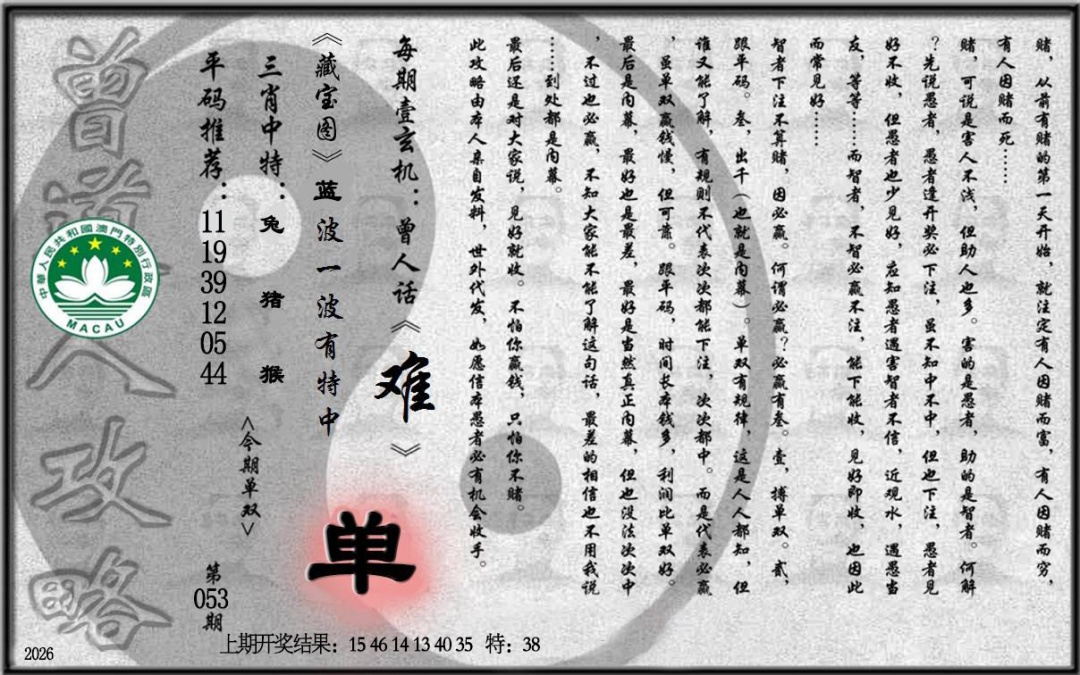 赌，从前有赌的第一天开始，就注定有人因赌而富，有人因赌而穷，
有人因赌而死……
赌，可说是害人不浅，但助人也多。害的是愚者，助的是智者。何解
？先说愚者，愚者逢开奖必下注，虽不知中不中，但也下注，愚者见
好不收，但愚者也少见好，应知愚者遇害智者不信，近观水，遇愚当
友，等等……而智者，不智必赢不注，能下能收，见好即收，也因此
而常见好……
智者下注不算赌，因必赢。何谓必赢？必赢有叁。壹，搏单双。贰，
跟平码。叁，出千（也就是内幕）。单双有规律，这是人人都知，但
谁又能了解，有规则不代表次次都能下注，次次都中。而是代表必赢
，虽单双赢钱慢，但可靠。跟平码，时间长本钱多，利润比单双好。
最后是内幕，最好也是最差，最好是当然真正内幕，但也没法次次中
，不过也必赢，不知大家能不能了解这句话，最差的相信也不用我说
……到处都是内幕。
最后还是对大家说，见好就收。不怕你赢钱，只怕你不赌。
此攻略由本人亲自发料，世外代发，如愿信本愚者必有机会收手。
每期壹玄机：曾人话《难》
《藏宝图》蓝波一波有特中
单
三肖中特：兔 猪 猴
<今期单双>
平码推荐：11 19 39 12 05 44
第053期
曾道人攻略
中華人民共和國澳門特別行政區
MACAU
上期开奖结果：15 46 14 13 40 35 特：38
2026